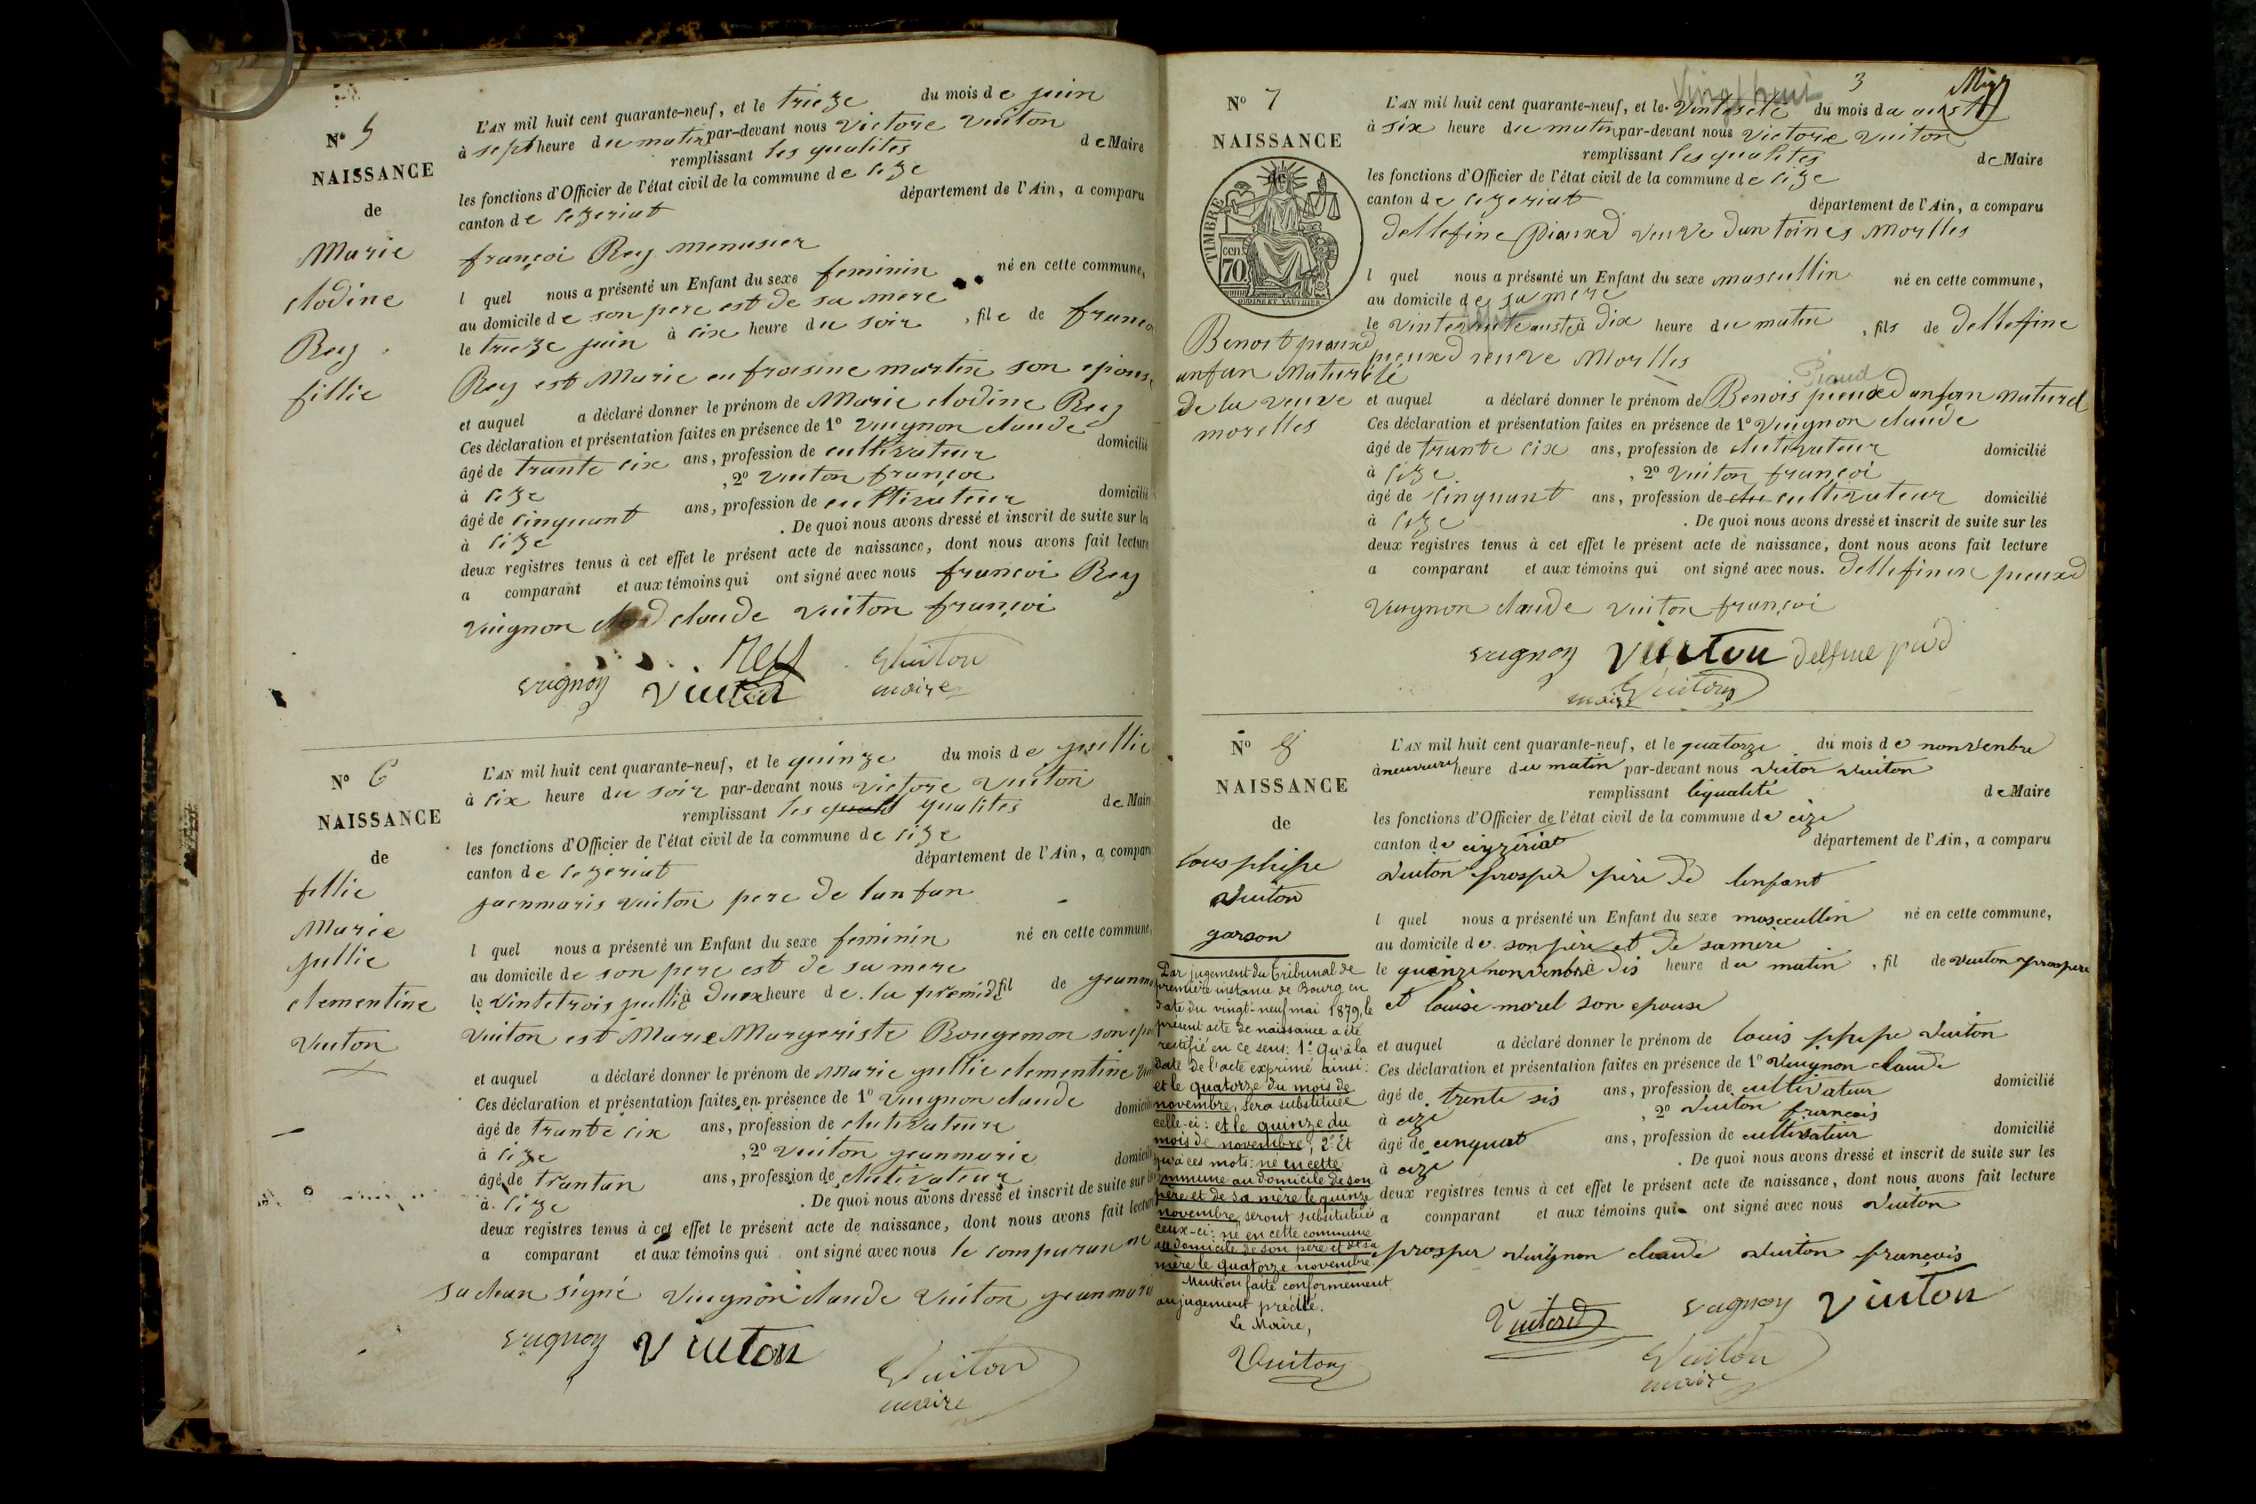 N° 5
NAISSANCE
de
Marie
clodine
Rey
fillie
L'AN mil huit cent quarante-neuf, et le trieze du mois de juin
à sept heure du matin par-devant nous Victore Vuiton
remplissant les qualites de Maire
les fonctions d'Officier de l'état civil de la commune de size
canton de sezeriat département de l'Ain, a comparu
françoi Rey menusier
l quel nous a présenté un Enfant du sexe feminin né en cette commune,
au domicile de son pere est de sa mere
le trieze juin à six heure du soir , file de franco
Rey est Marie enfrosine martin son epouse
et auquel a déclaré donner le prénom de Marie clodine Rey
Ces déclaration et présentation faites en présence de 1° Vuignon claude
âgé de trante six ans, profession de cultivateur domicilié
à size , 2° Vuiton françoi
âgé de sinquant ans, profession de cultivateur domicilié
à size . De quoi nous avons dressé et inscrit de suite sur les
deux registres tenus à cet effet le présent acte de naissance, dont nous avons fait lecture
a comparant et aux témoins qui ont signé avec nous françoi Rey
Vuignon claude Vuiton françoi
Rey Vuiton
vuignon Vuiton maire
N° 6
NAISSANCE
de
fillie
Marie
jullie
clementine
Vuiton
L'AN mil huit cent quarante-neuf, et le quinze du mois de jullie
à six heure du soir par-devant nous victore vuiton
remplissant les quali qualites de Maire
les fonctions d'Officier de l'état civil de la commune de size
canton de sezeriat département de l'Ain, a comparu
jaenmaris vuiton pere de lanfan
l quel nous a présenté un Enfant du sexe feminin né en cette commune,
au domicile de son pere est de sa mere
le vintetrois jullie à duex heure de la premidi fil de jeanma
Vuiton est Marie Margeriste Bougemon son epo
et auquel a déclaré donner le prénom de Marie jullie clementine
Ces déclaration et présentation faites en présence de 1° Vuignon claude
âgé de trante six ans, profession de clutivateure domicilié
à size , 2° Vuiton jeanmarie
âgé de trantan ans, profession de clutivateur domicilié
à size . De quoi nous avons dressé et inscrit de suite sur les
deux registres tenus à cet effet le présent acte de naissance, dont nous avons fait lecture
a comparant et aux témoins qui ont signé avec nous le comparan ne
sachan signé Vuignon claude Vuiton jeanmari
vuignon Vuiton Vuiton
maire
3
N° 7
NAISSANCE
de
TIMBRE
cen. 70
Benoit piauxd
anfan naturelé
de la veuve
morelles
vingt huit
L'AN mil huit cent quarante-neuf, et le vinteseté du mois da aust
à six heure du matin par-devant nous victore vuiton
remplissant les qualites de Maire
les fonctions d'Officier de l'état civil de la commune de size
canton de sezeriat département de l'Ain, a comparu
dellefine piauxd veuve dantoines Morlles
l quel nous a présenté un Enfant du sexe mascullin né en cette commune,
au domicile de sa mere
le vintesuite auste à dix heure du matin , fils de dellefine
pieuxd veuve Morlles
Piaud
et auquel a déclaré donner le prénom de Benois pieuxd anfan naturel
Ces déclaration et présentation faites en présence de 1° Vuignon claude
âgé de trante six ans, profession de clutivateur domicilié
à size , 2° vuiton françoi
âgé de sinquant ans, profession de clu cultivateur domicilié
à size . De quoi nous avons dressé et inscrit de suite sur les
deux registres tenus à cet effet le présent acte de naissance, dont nous avons fait lecture
a comparant et aux témoins qui ont signé avec nous. dellefinen pieuxd
Vuignon claude vuiton françoi
vuignon Vuiton delfine piod
Vuiton
maire
N° 8
NAISSANCE
de
louis phipe
vuiton
garson
L'AN mil huit cent quarante-neuf, et le quatorze du mois de nonvenbre
à neuveure heure du matin par-devant nous victor vuiton
remplissant lequalité de Maire
les fonctions d'Officier de l'état civil de la commune de cize
canton de ceyzériat département de l'Ain, a comparu
vuiton prosper père de lenfant
l quel nous a présenté un Enfant du sexe masecullin né en cette commune,
au domicile de son père et de samère
le quinze nonvenbre à dis heure du matin , fil de vuiton prospere
et louise morel son epouse
et auquel a déclaré donner le prénom de louis phipe vuiton
Ces déclaration et présentation faites en présence de 1° vuignon claude
âgé de trente sis ans, profession de cultivateur domicilié
à cize , 2° vuiton francois
âgé de cinquat ans, profession de cultivateur domicilié
à cize . De quoi nous avons dressé et inscrit de suite sur les
deux registres tenus à cet effet le présent acte de naissance, dont nous avons fait lecture
a comparant et aux témoins qui ont signé avec nous vuiton
prosper vuignon claude vuiton françois
Vuiton vuignon Vuiton
Vuiton
maire
Par jugement du tribunal de
première instance de Bourg en
date du vingt-neuf mai 1879, le
présent acte de naissance a été
rectifié en ce sens: 1° Qu'à la
date de l'acte exprimé ainsi:
et le quatorze du mois de
novembre, sera substituée
celle-ci: et le quinze du
mois de novembre; 2° Et
qu'à ces mots: né en cette
commune au domicile de son
père et de sa mère le quinze
novembre, seront substitués
ceux-ci: né en cette commune
au domicile de son père et de sa
mère le quatorze novembre.
Mention faite conformément
au jugement précité.
Le Maire,
Vuiton